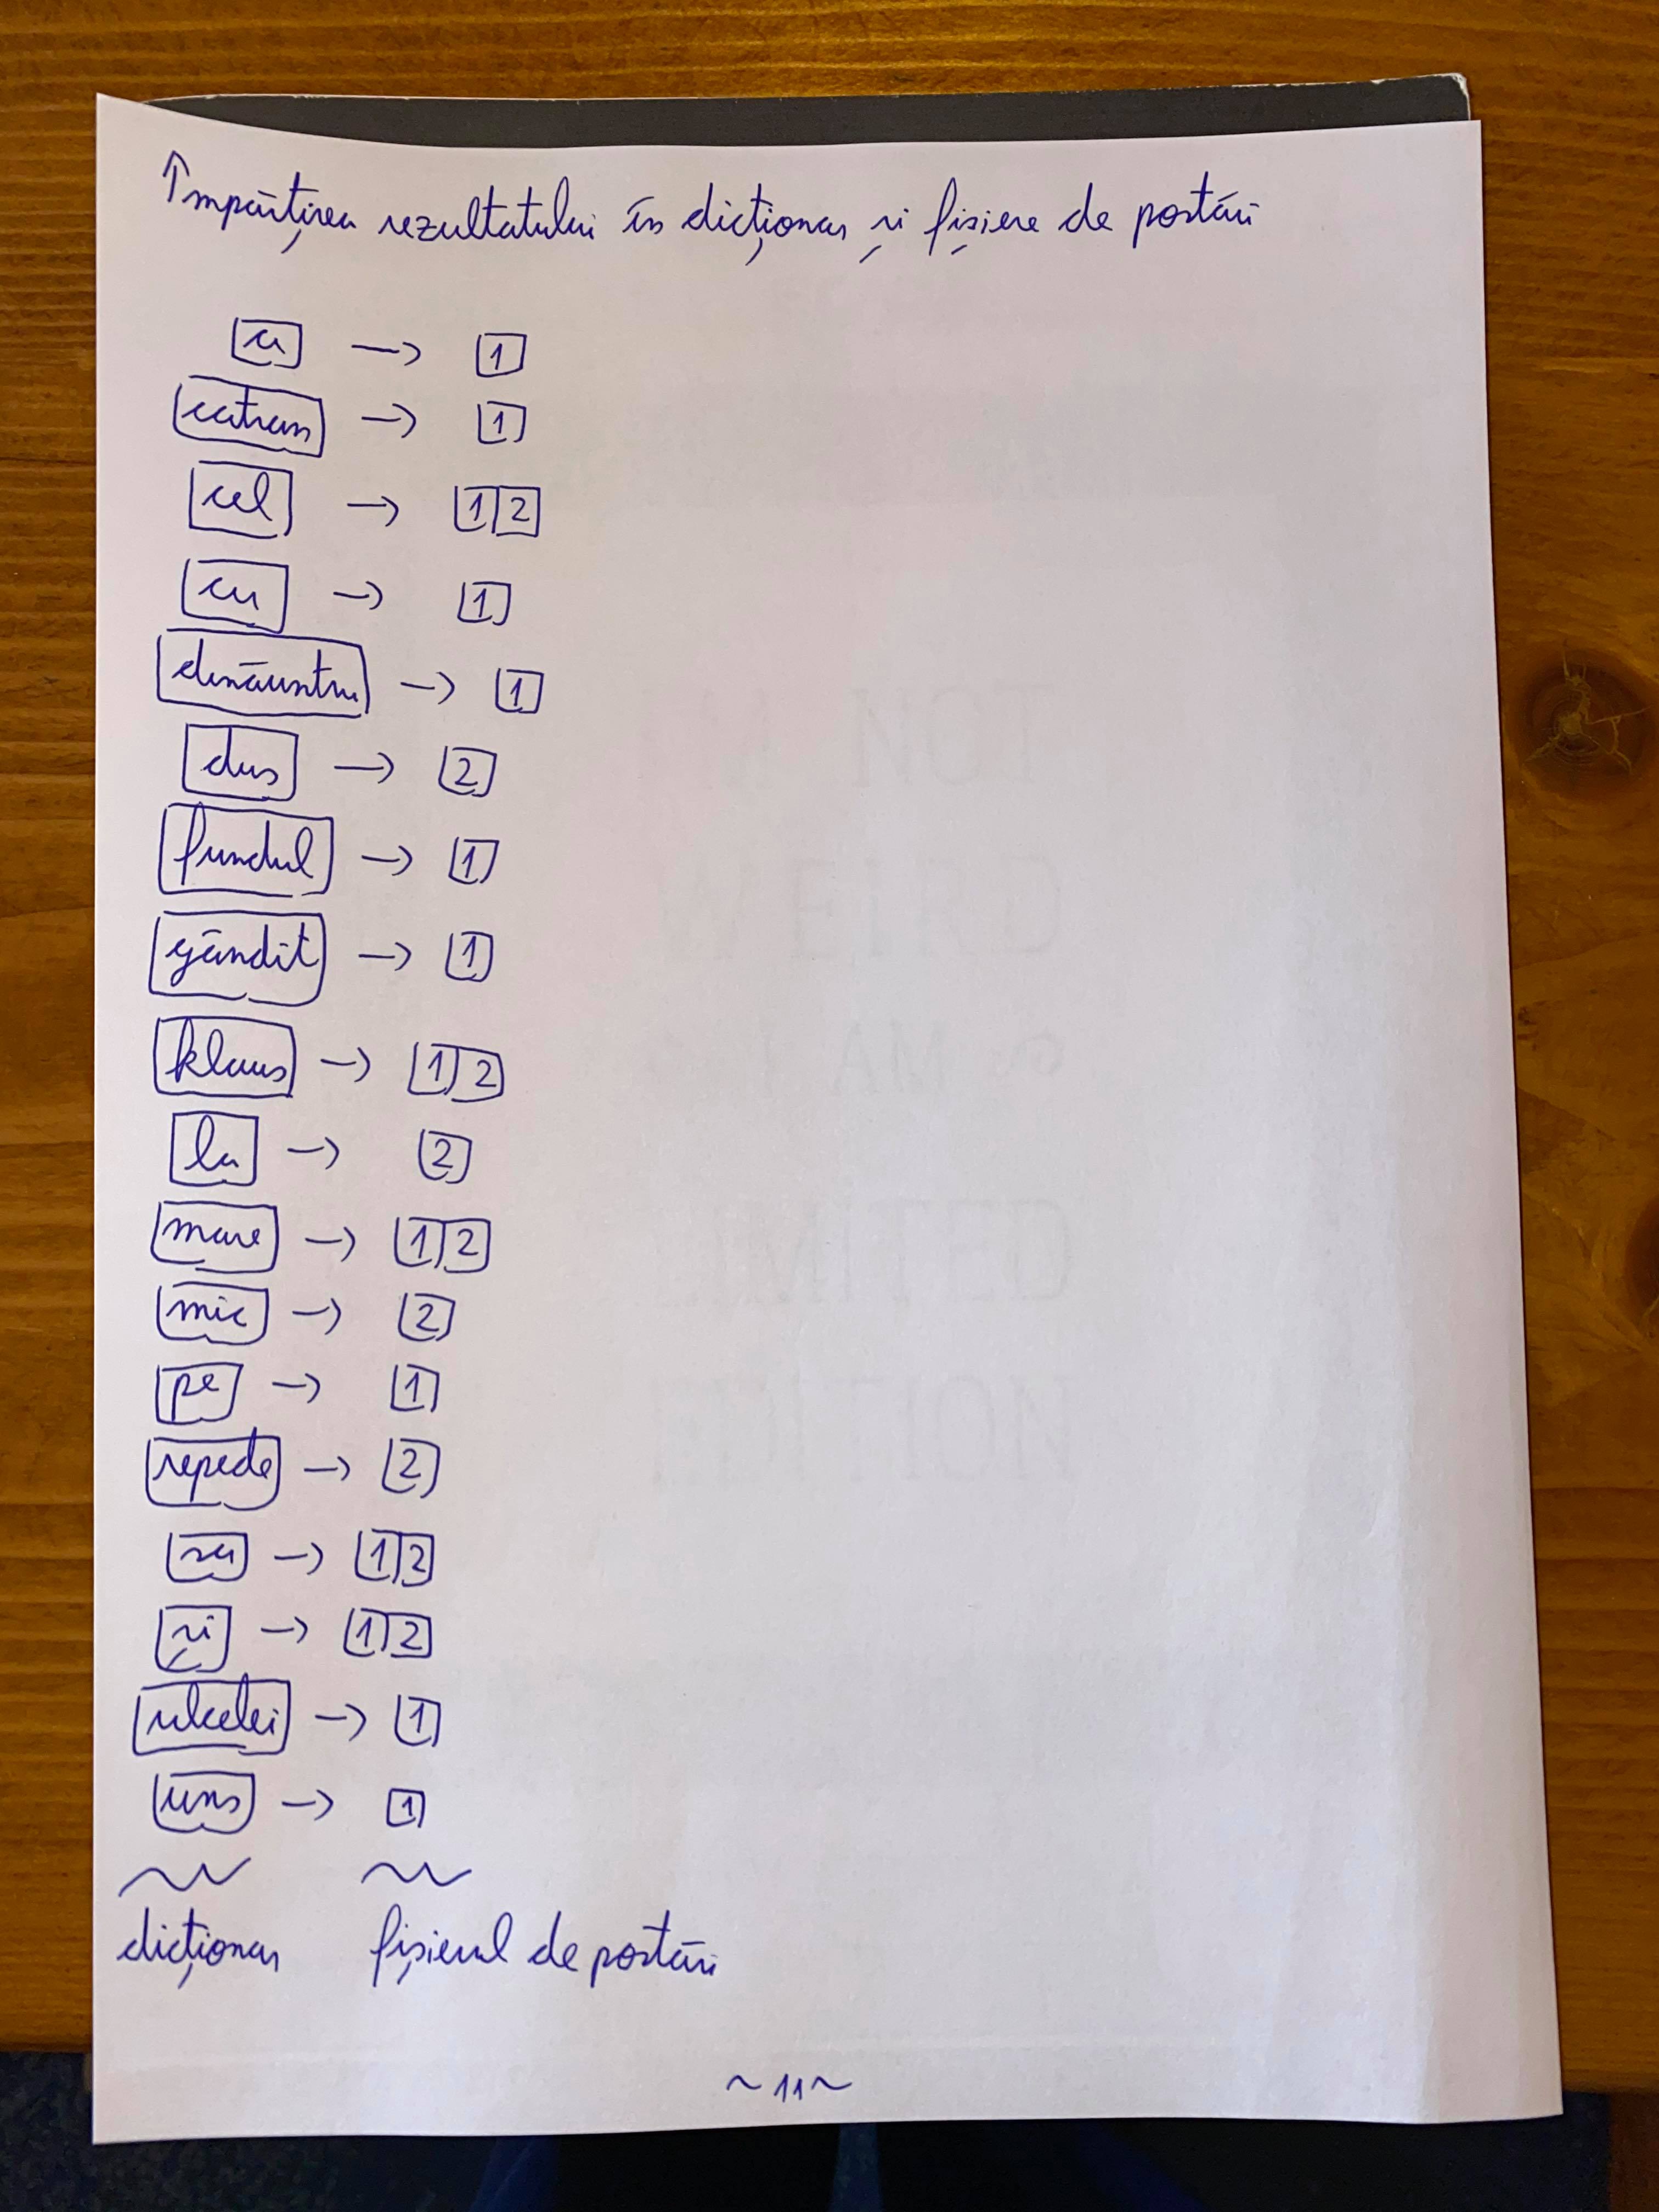 Împărțirea rezultatului în dicționar și fișiere de postări
a → 1
catran → 1
cel → 1 2
cu → 1
dinăuntru → 1
dus → 2
fundul → 1
gândit → 1
klaus → 1 2
la → 2
mare → 1 2
mic → 2
pe → 1
repede → 2
sa → 1 2
și → 1 2
ulcelei → 1
uns → 1
dicționar fișierul de postări
~ 11 ~